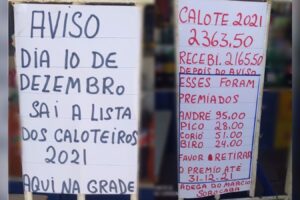 AVISO
DIA 10 DE
DEZEMBRO
SAI A LISTA
DOS CALOTEIROS
2021
AQUI NA GRADE
CALOTE 2021
2363,50
RECEBI. 2165.50
DEPOIS DO AVISO
ESSES FORAM
PREMIADOS
ANDRÉ 95.00
PICO 28.00
CORIÓ 51.00
BIRO 24.00
FAVOR RETIRAR
O PREMIO ATÉ
31-12-21
ADEGA DO MARCIO
SOROCABA